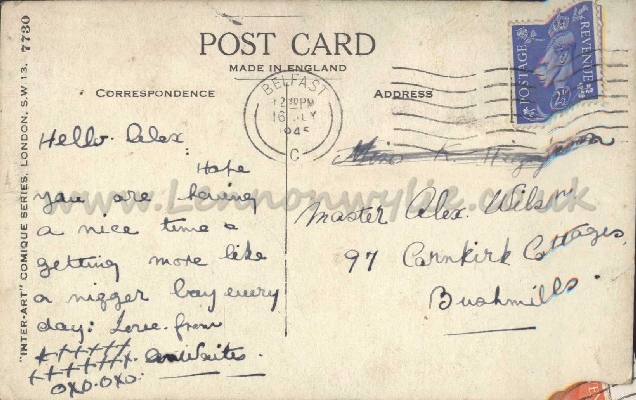 POST CARD
MADE IN ENGLAND
CORRESPONDENCE
ADDRESS
"INTER-ART" COMIQUE SERIES, LONDON, S.W 13. 7730
BELFAST
12 PM
16 LY
1945
C
POSTAGE
REVENUE
2½D
Hello Alex
Hope
you are having
a nice time &
getting more like
a nigger boy every
day: Love from
+++++++
+++++++.
OXO.OXO.
Miss K.
Master Alex. Wilson
97 Carnkirk Cottages,
Bushmills.
www.Lennonwylie.co.uk